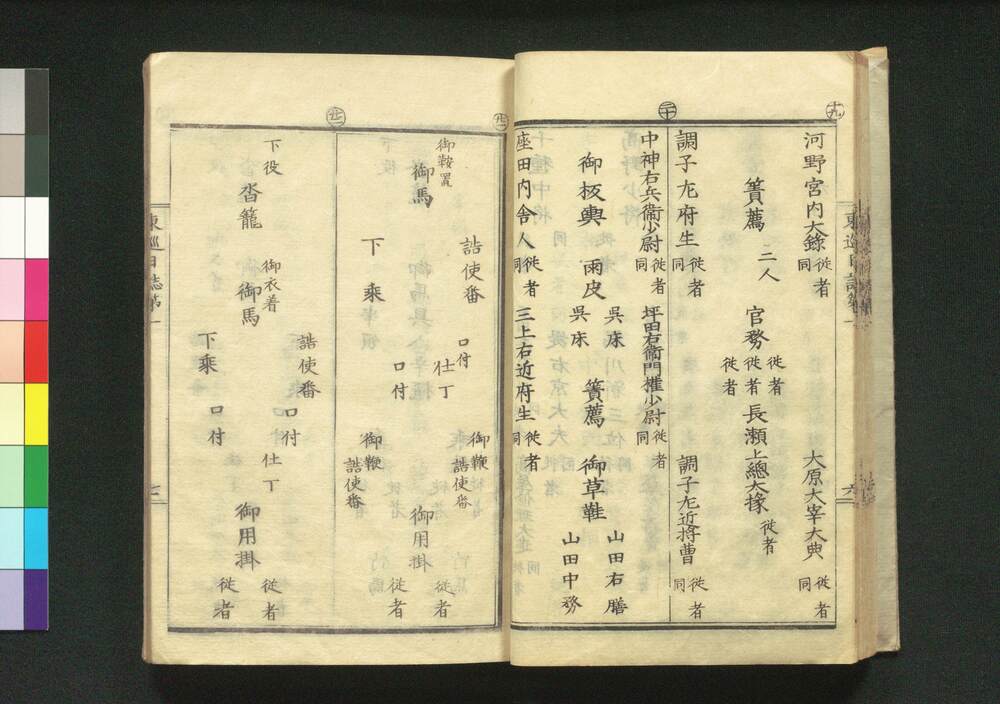 十九
河野宮内大錄 従者 同
大原大宰大典 従者 同
簀薦 二人
官務 従者 従者 従者
長瀬上總大掾 従者
二十
調子左府生 従者 同
調子左近将曹 従者 同
中神右兵衛少尉 従者 同
坪田右衛門權少尉 従者 同
御板輿 雨皮
呉床
呉床
簀薦 御草鞋
山田右膳
山田中務
座田内舎人 従者 同
三上右近府生 従者 同
東巡日誌第一
六
廿一
御鞍置
御馬
詰使番
下乗
口付
口付
仕丁
御鞭
詰使番
御鞭
詰使番
御用掛
従者
従者
廿二
下役
沓籠
御衣着
御馬
詰使番
下乗
口付
口付
仕丁
御用掛
従者
従者
東巡日誌第一
七